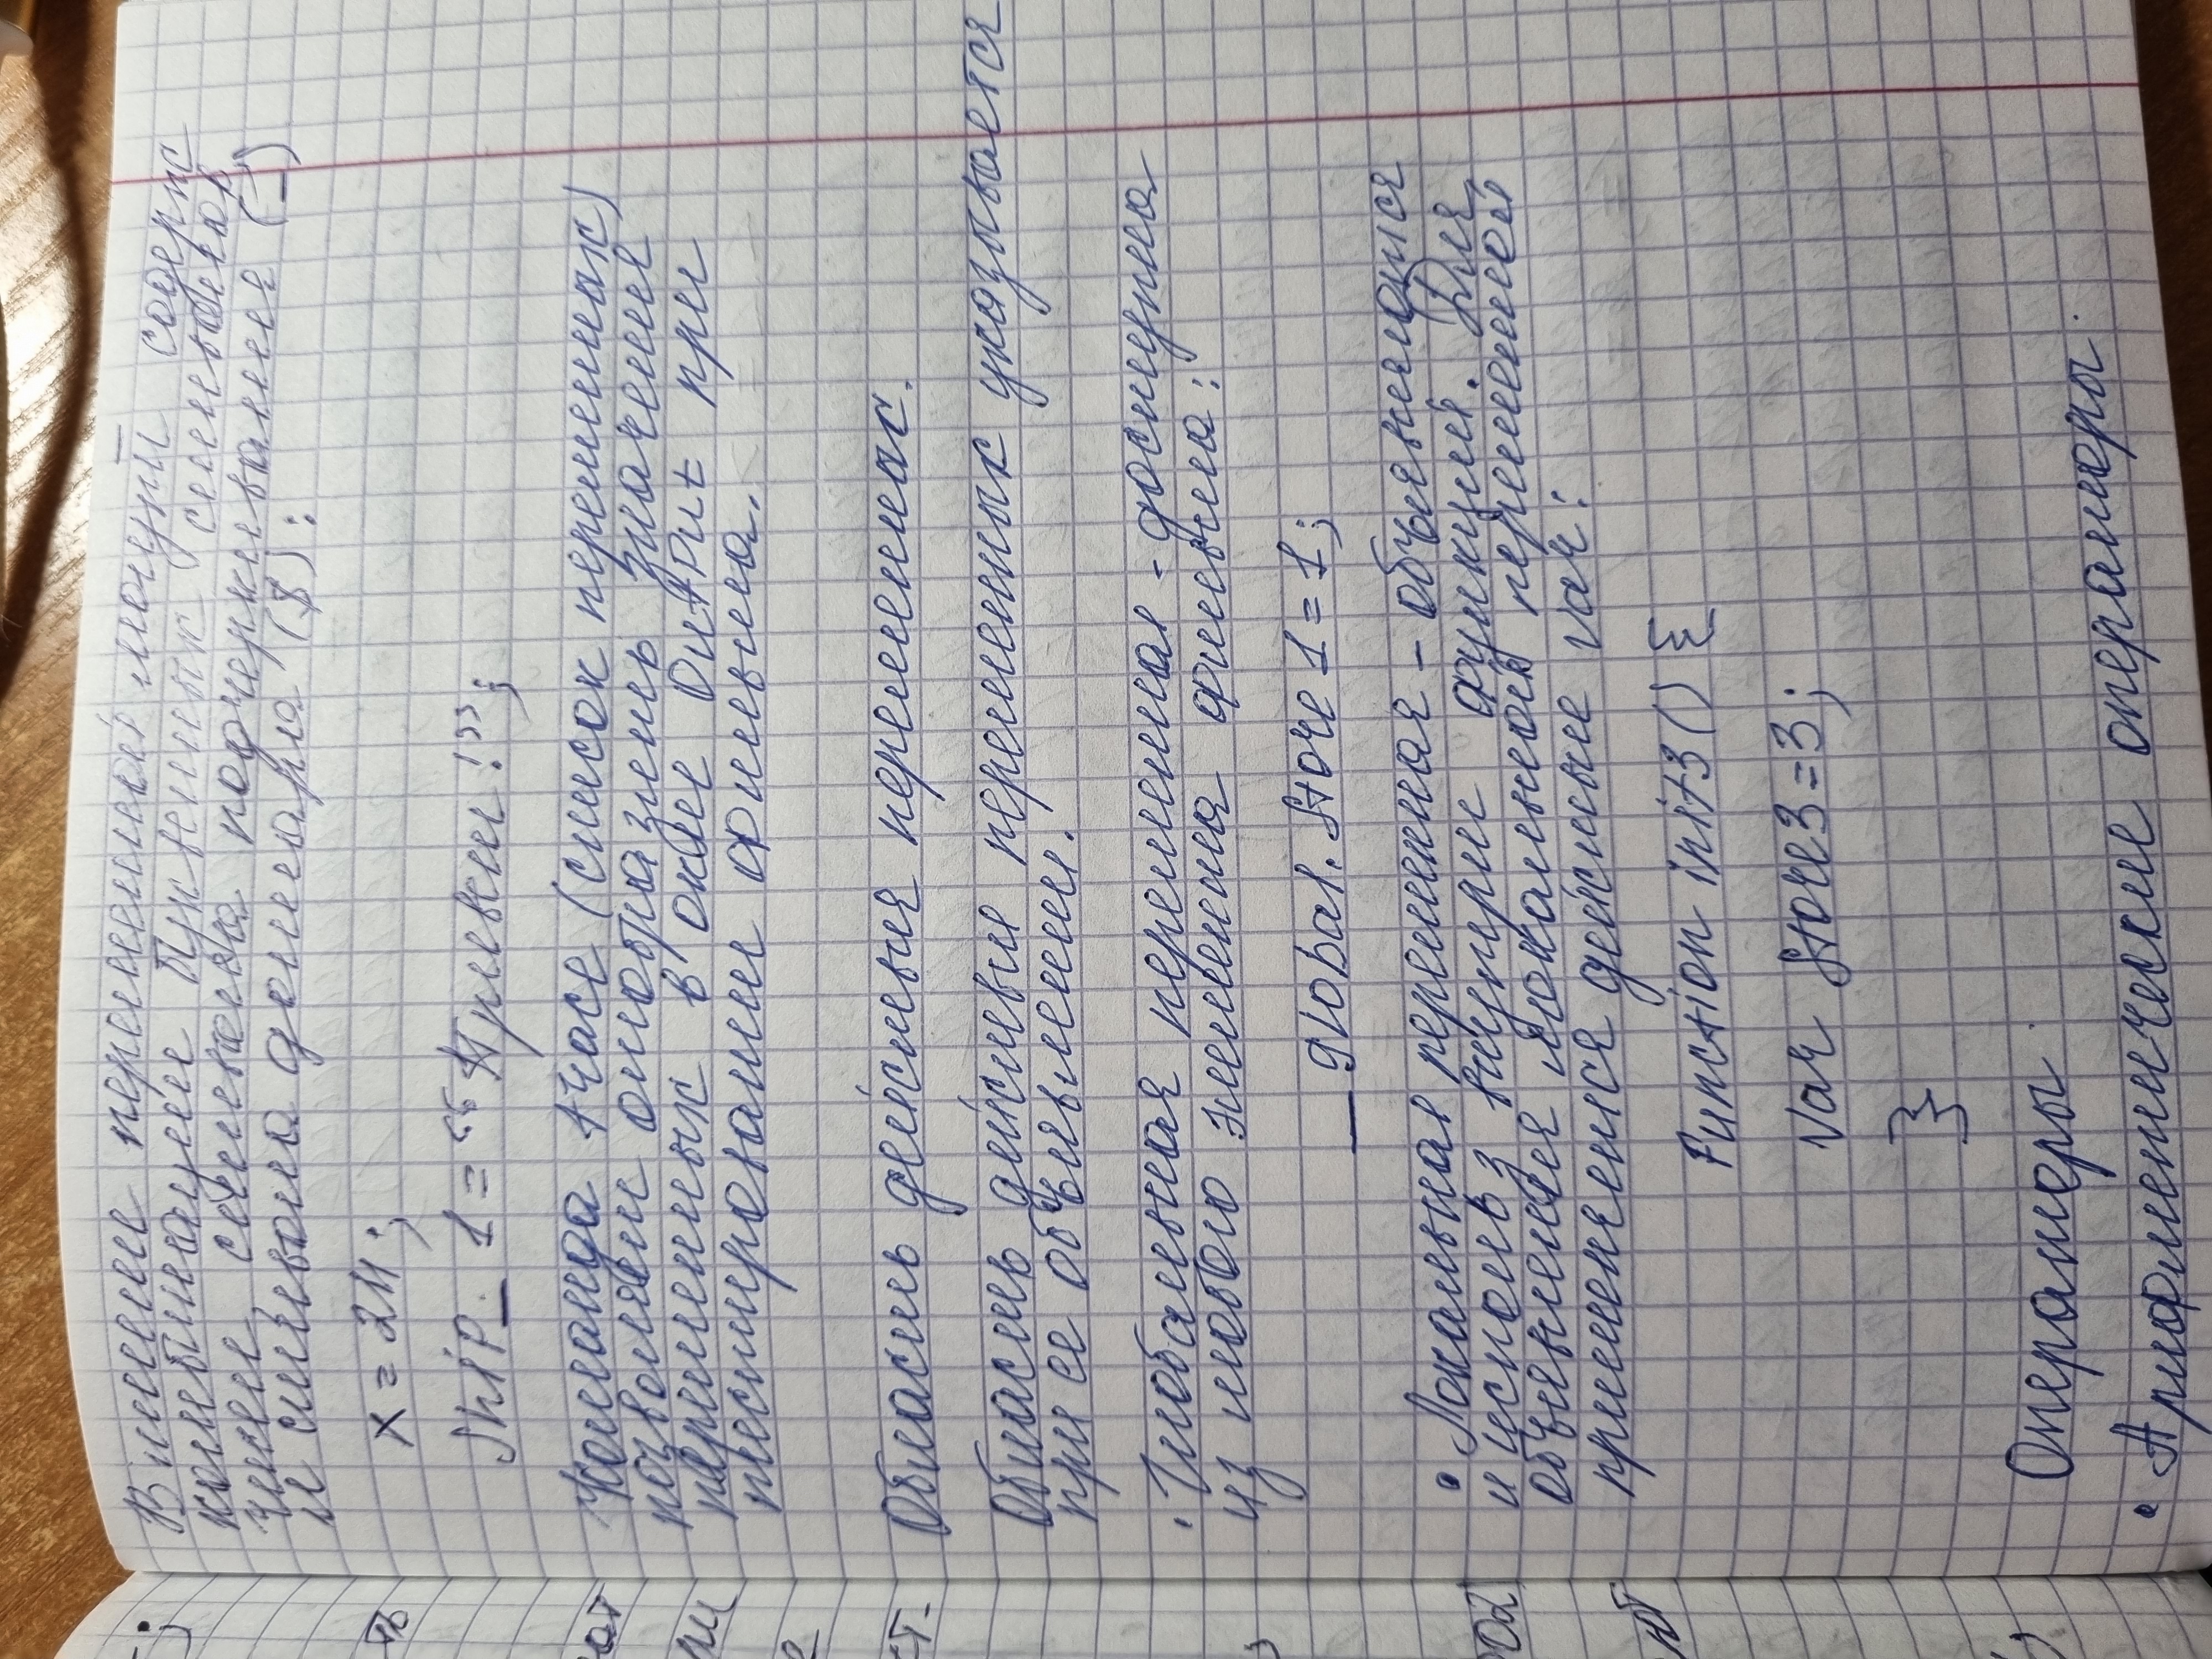 В имени переменной могут содерж
комбинации буквенных символов,
чисел, символа подчеркивания (_)
и символа доллара ($):
x = 24;
Ship_1 = “Привет!”;
Команда trace (список переменных)
позволяет отобразить значения
переменных в окне Output при
тестировании фильма.
Область действия переменных.
Область действия переменных указывается
при ее объявлении.
• Глобальная переменная - доступна
из любого элемента фильма:
_global.Store1 = 1;
• Локальная переменная – объявляются
и использ внутри функций. Для
объявления локальной переменной
применяется действие var:
Function init3() {
Var Store3 = 3;
}
Операторы
• Арифметические операторы